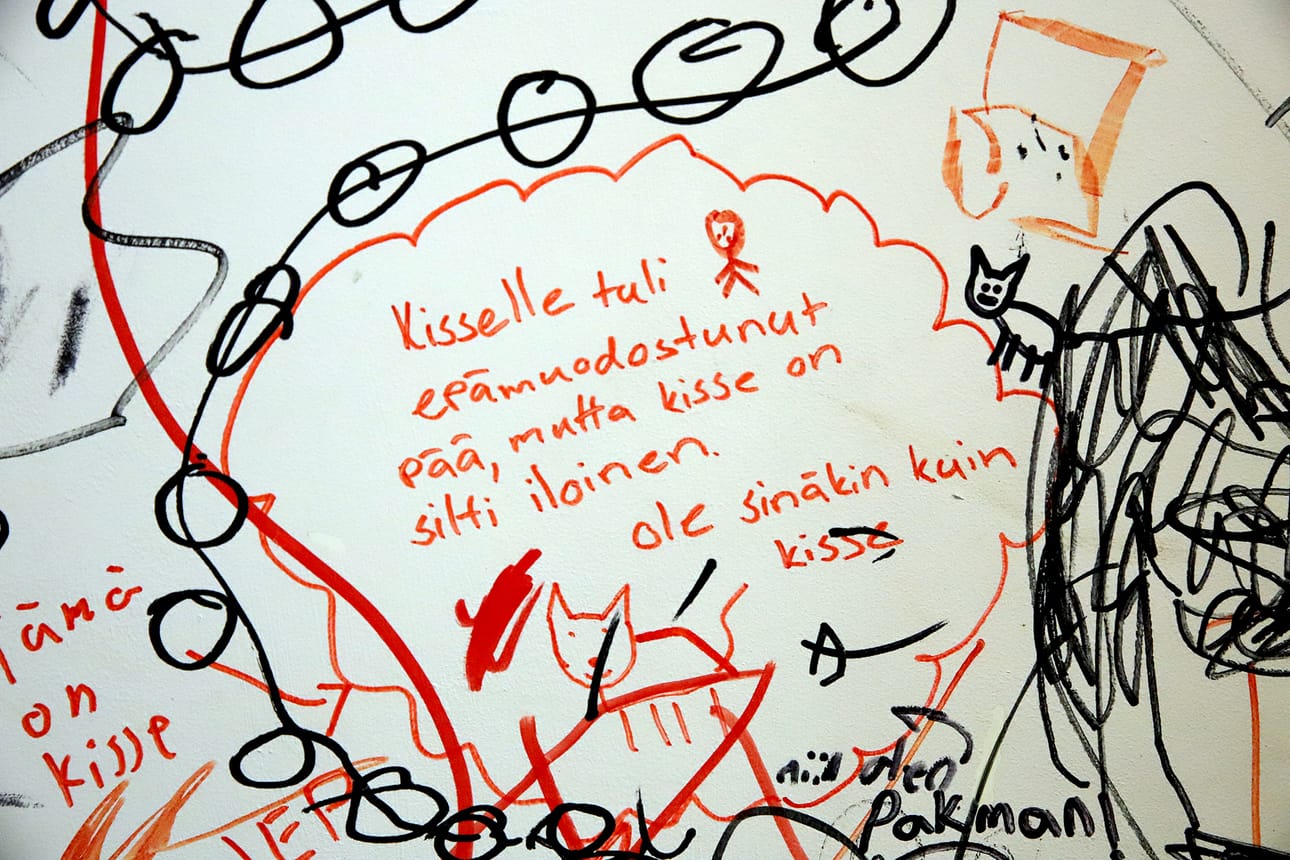 Kisselle tuli
epämuodostunut
pää, mutta kisse on
silti iloinen.
ole sinäkin kuin
kisse
Tämä
on
kisse
niin olen
Pakman!